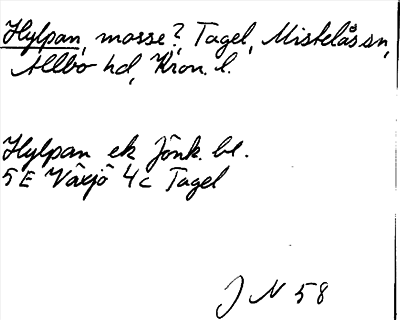 Hylpan, mosse?, Tagel, Mistelås sn,
Allbo hd, Kron. l.
Hylpan ek Jönk. bl.
5E Växjö 4c Tagel
J N 58